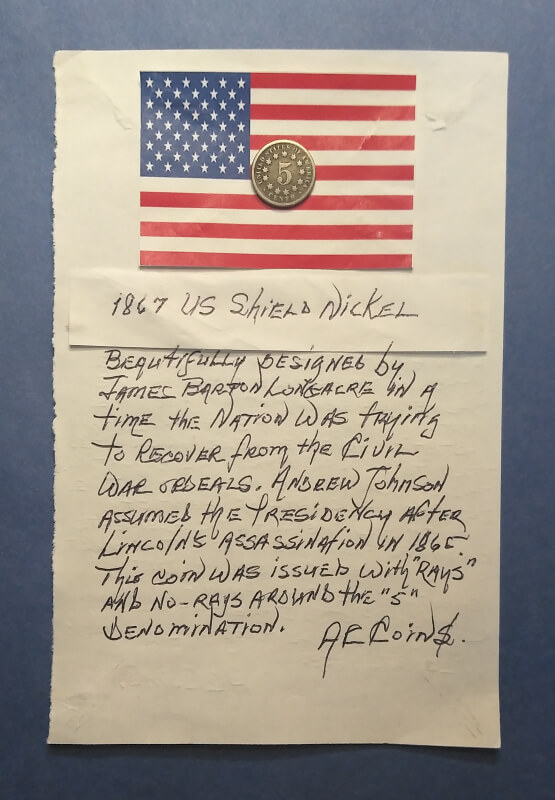 UNITED STATES OF AMERICA
5
CENTS
1867 US Shield Nickel
Beautifully designed by
James Barton Longacre in a
time the Nation was trying
to recover from the Civil
War ordeals. Andrew Johnson
assumed the Presidency after
Lincoln's assassination in 1865.
This coin was issued with "Rays"
and no-rays around the "5"
denomination.
AC Coin$.